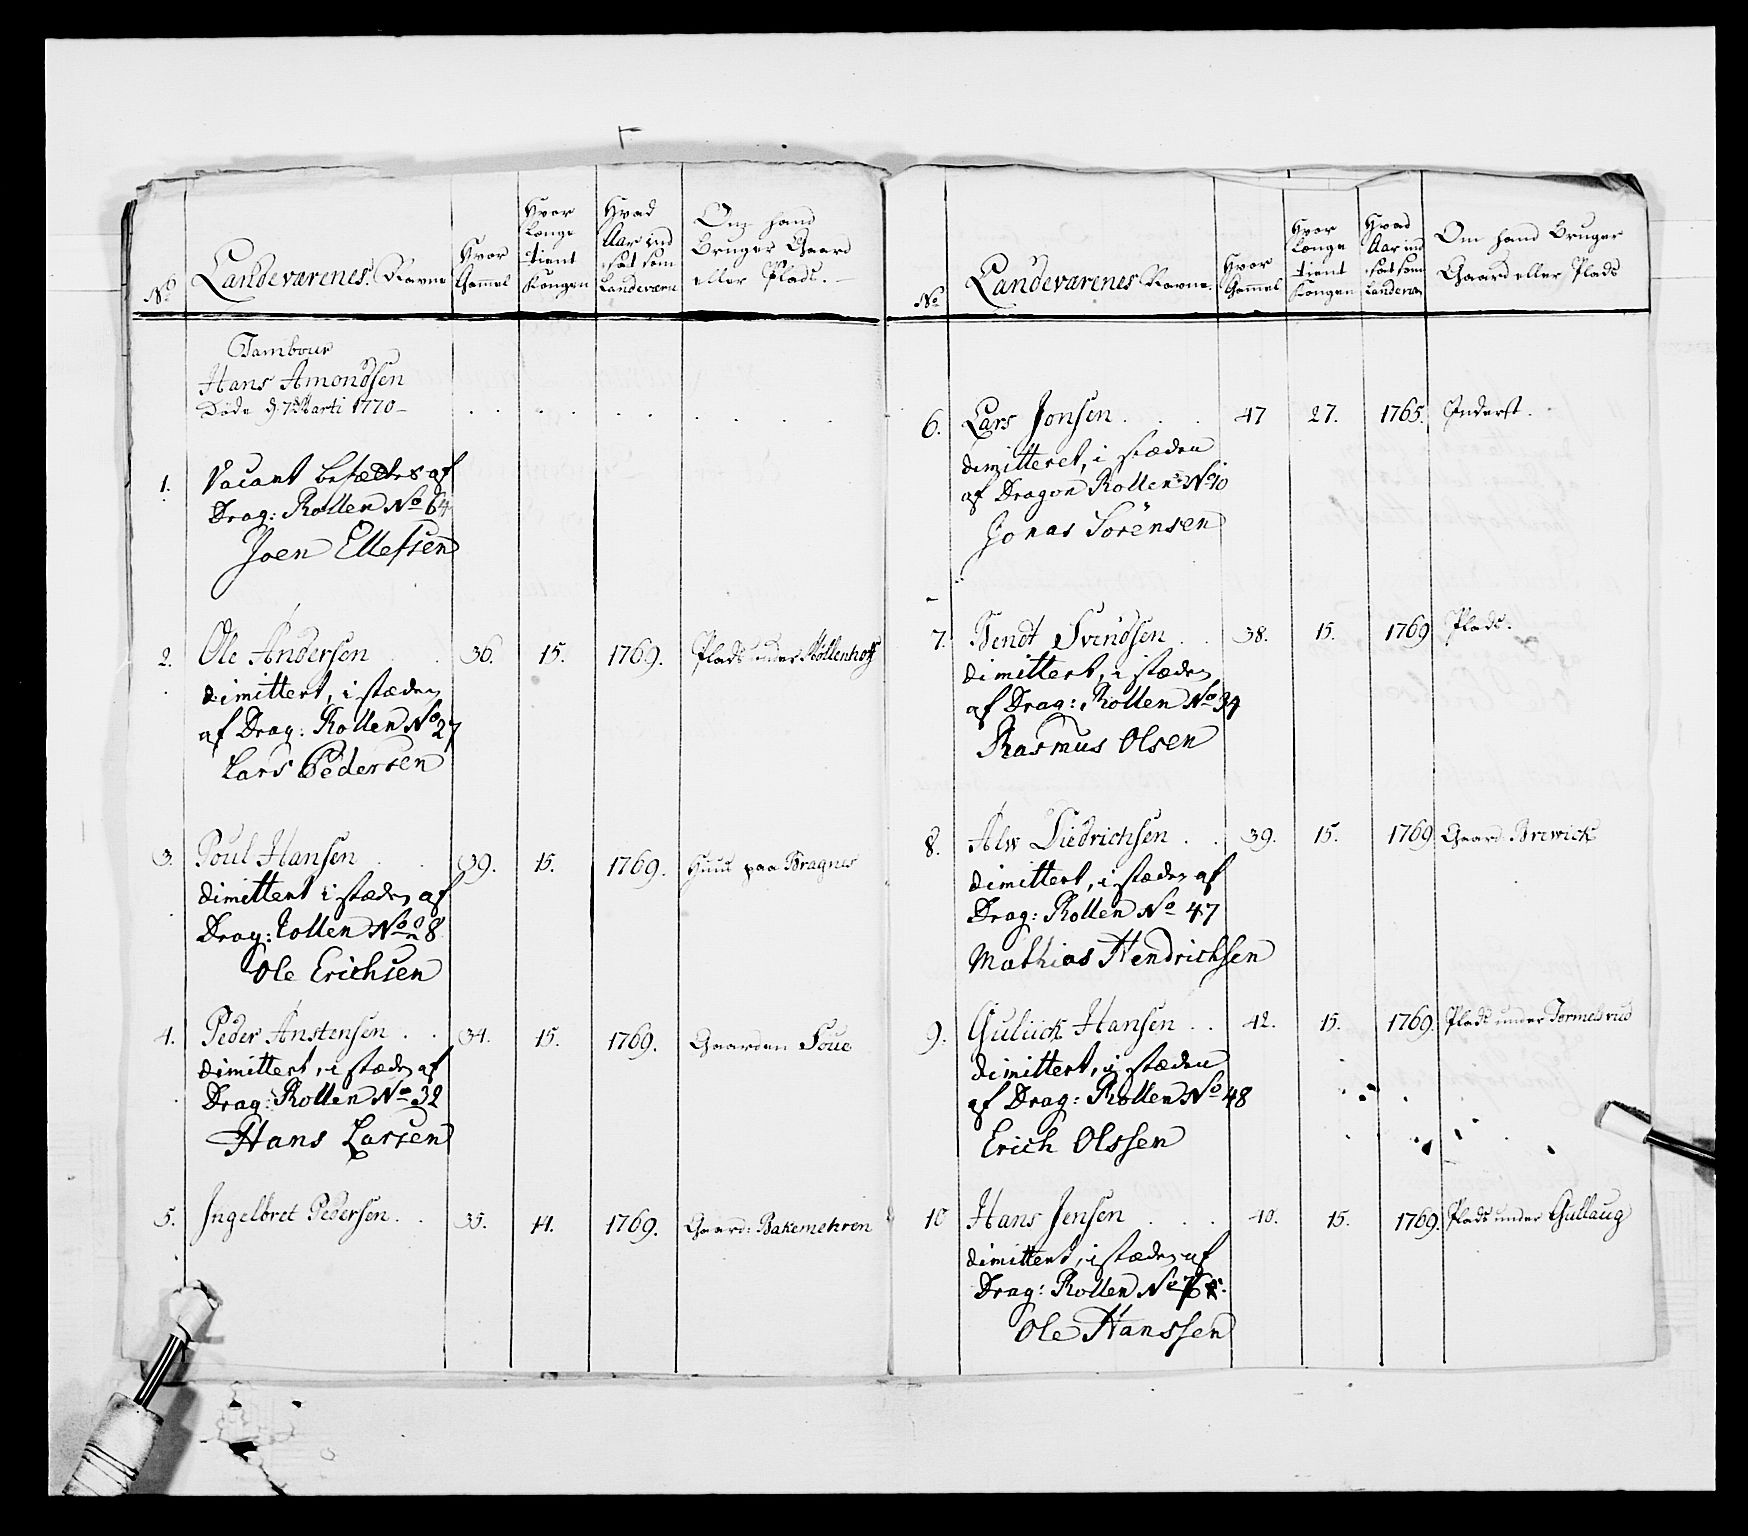 No
Landeværenes Navne
Hvor Gammel
Hvor længe tient Kongen
Hvad Aar indsat som Landeværn
Om hand Bruger Gaard eller Plads.
Tambour
Hans Amondsen
Døde d: 7 Marti 1770
1. Vacant besættes af
Drag: Rollen No 64
Joen Ellefsen
2. Ole Andersen . . 36. 15. 1769. Plads under
dimittert, i stæden
af Drag: Rollen No 27
Lars Pedersen
3. Poul Hansen . . 39. 15. 1769. Huus paa Bragnes
dimittert i stæden af
Drag: Rollen No 28
Ole Erichsen
4. Peder Anstensen . . 34. 15. 1769. Gaarden Foue
dimittert, i stæden af
Drag: Rollen No 32
Hans Larsen
5. Ingelbret Pedersen . . 35. 14. 1769. Gaard: Bakemehren
No
Landeværenes Navne.
Hvor Gammel
Hvor længe tient Kongen
Hvad Aar ind sat som Landevæn
Om hand Bruger Gaard eller Plads
6. Lars Jonsen . . . 47 27. 1765. Inderst.
dimitteret, i stæden
af Dragon Rollens No 10
Jonas Sörensen
7. Bendt Svendsen . . 38. 15. 1769 Plads.
dimittert, i stæden
af Drag: Rollen No 34
Rasmus Olsen
8. Alw Diedrichsen . . 39. 15. 1769 Gaard Brewick
dimittert, i stæden af
Drag: Rollen No 47
Mathias Hendrichsen
9. Guliick Hansen . . 42. 15. 1769. Plads under Tormelsrud
dimittert, i stæden
af Drag: Rollen No 48
Erich Olssen
10 Hans Jensen . . . 40. 15. 1769. Plads under Gullaug
dimittert, i stæden af
Drag: Rollen No
Ole Hanssen